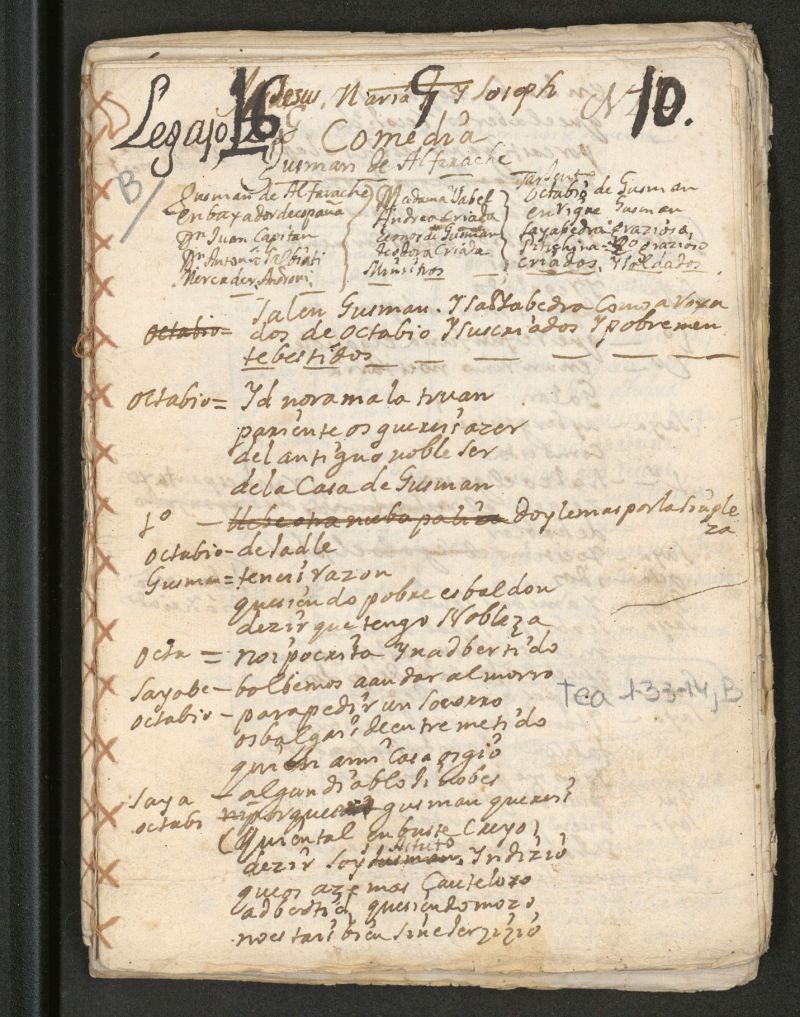 Jesus, Maria, Y Joseph
Legajo 16 9 N 10.
Comedia
B
Gusman de Alfarache
Gusman de Alfarache
Enbaxador de españa
Dn Juan Capitan
Dn Antonio Salbiati
Mercader, Andreni
Madama Ysabel
Andrea Criada
Leonor de Gusman
Teodora Criada
Ministros
Octabio de Gusman
enrique Gusman
sayabedra grazioso
2o grazioso
criados, Y soldados
Octabio= Salen Gusman. Y sallabedra como aroxa
dos de Octabio Y sus criados Y pobremen
te bestidos
Octabio= Yd noramala truan
pariente os quereis azer
del antiguo noble ser
de la Casa de Gusman
1o — doylemas por la simple
za
Octabio- dejadle
Gusman= teneis razon
que siendo pobre es baldon
dezir que tengo Nobleza
Octa = no ipocrita Ynadbertido
Sayabe- bolbemos a andar al morro
octabio- para pedir un socorro
os balgais de entremetido
quien a mi Casa os gió
Saya — algun diablo
octabi porque gusman quereis
(quien tal enbuste Creyo)
dezir soy gusman, Yndizio
astuto
que os aze mas Cauteloso
adbertid, que siendo mozo
no estais bien sin exerzizio
tea 1-33-14, B